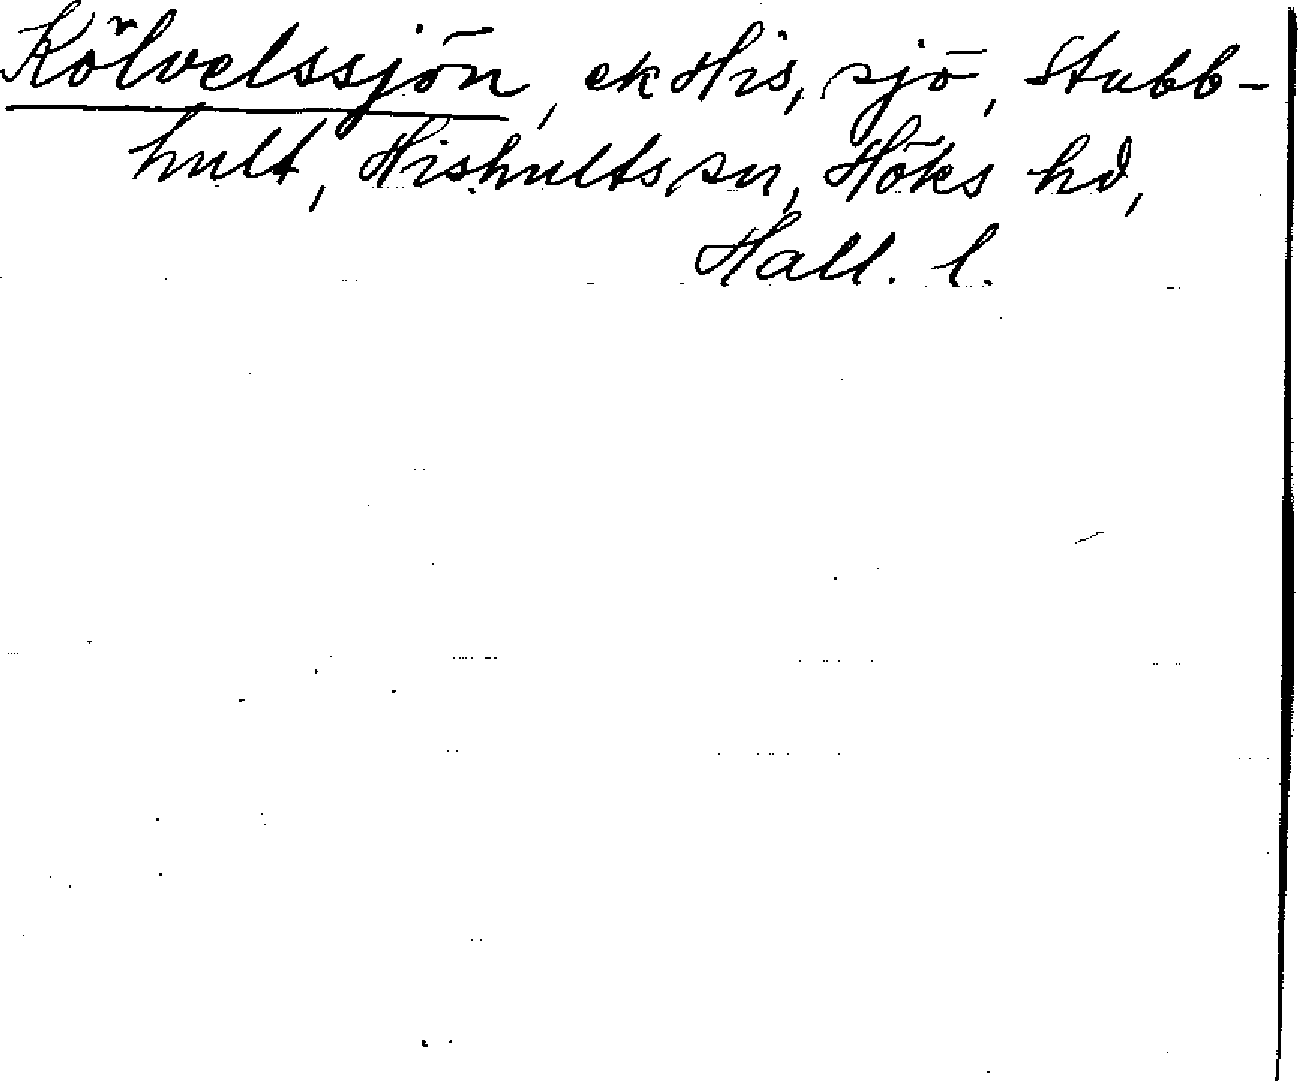 Kölvelssjön, ek His, sjö, Stubb-
hult, Hishults sn, Höks hd,
Hall. l.